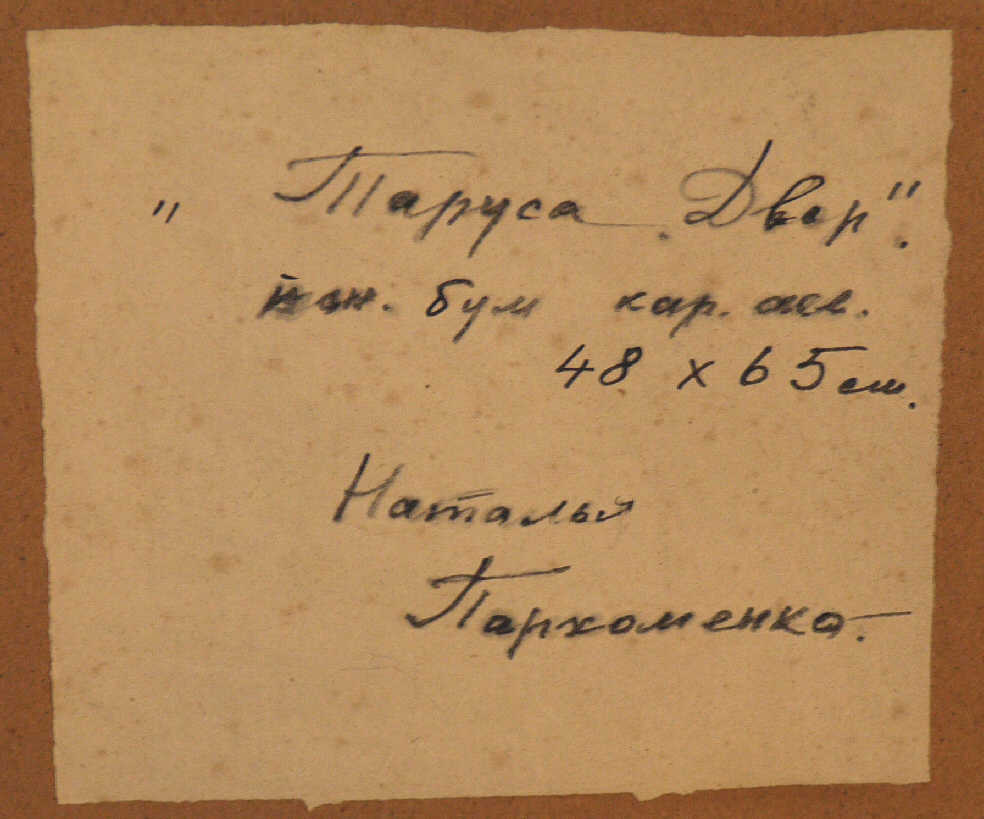 " Таруса. Двор".
бум кар. акв.
48 х 65 см.
Наталья
Пархоменко.